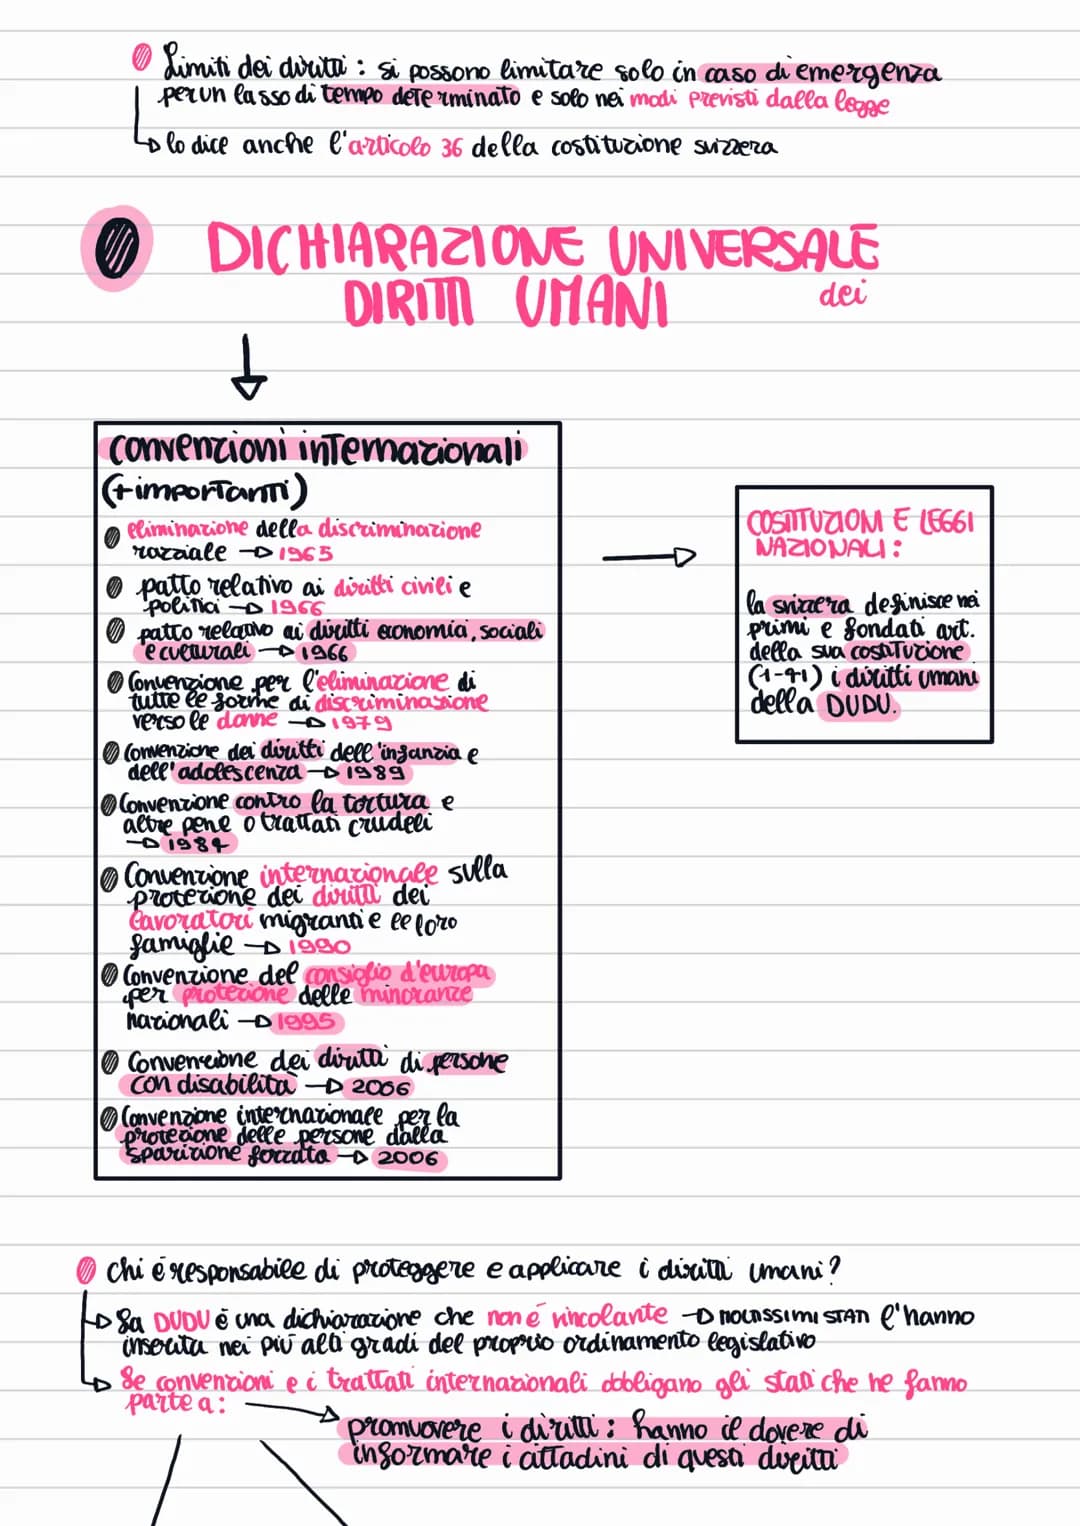 Limiti dei diritti : si possono limitare solo in caso di emergenza
per un lasso di tempo determinato e solo nei modi previsti dalla legge
lo dice anche l'articolo 36 della costituzione svizzera
DICHIARAZIONE UNIVERSALE
dei
DIRITTI UMANI
convenzioni internazionali
(+ importanti)
eliminazione della discriminazione
razziale → 1965
patto relativo ai diritti civili e
politici → 1966
patto relativo ai diritti economia, sociali
e culturali → 1966
Convenzione per l'eliminazione di
tutte le forme di discriminazione
verso le donne → 1979
Convenzione dei diritti dell'infanzia e
dell'adolescenza → 1989
Convenzione contro la tortura e
altre pene o trattati crudeli
→ 1984
Convenzione internazionale sulla
protezione dei diritti dei
lavoratori migranti e le loro
famiglie → 1990
Convenzione del consiglio d'europa
per protezione delle minoranze
nazionali → 1995
Convenzione dei diritti di persone
con disabilità → 2006
Convenzione internazionale per la
protezione delle persone dalla
sparizione forzata → 2006
COSTITUZIONI E LEGGI
NAZIONALI :
la svizzera definisce nei
primi e fondati art.
della sua costituzione
(1-41) i diritti umani
della DUDU.
chi é responsabile di proteggere e applicare i diritti umani?
La DUDU é una dichiarazione che non é vincolante → MOLTISSIMI STATI l'hanno
inserita nei più alti gradi del proprio ordinamento legislativo
Le convenzioni e i trattati internazionali obbligano gli stati che ne fanno
parte a :
promuovere i diritti : hanno il dovere di
informare i cittadini di questi diritti